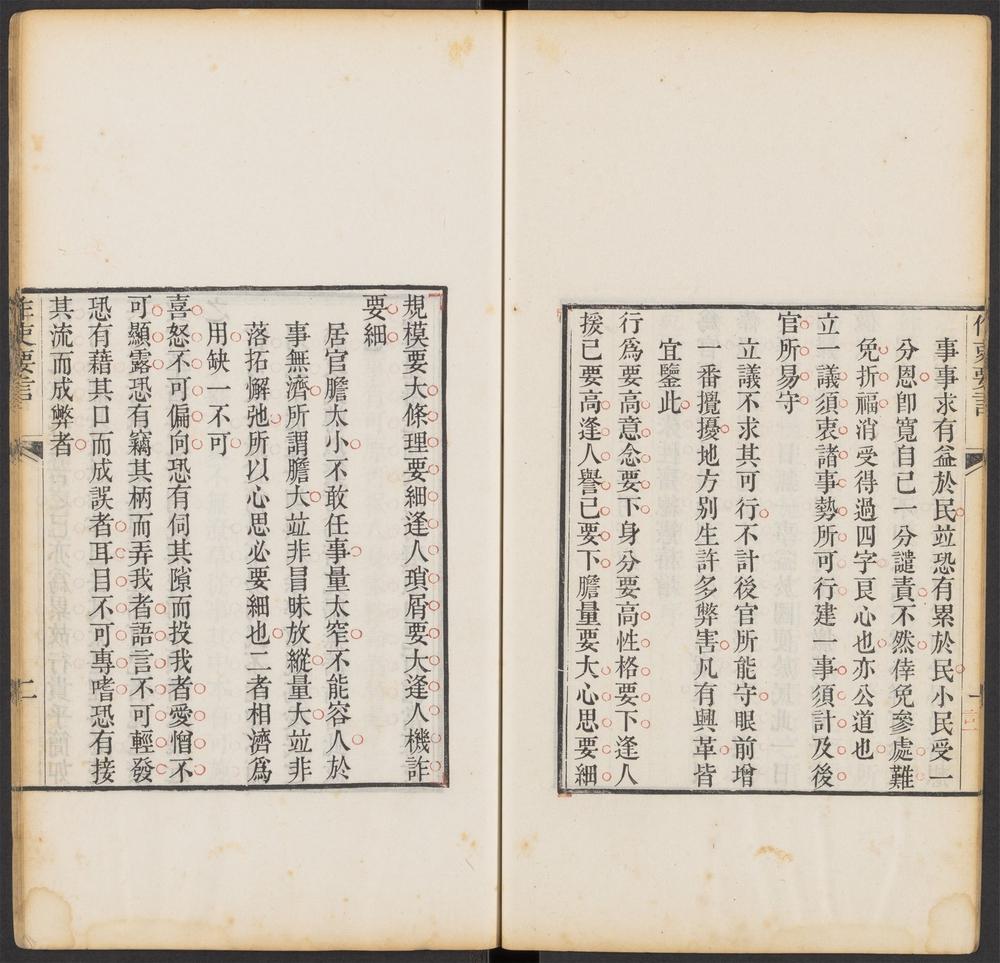 作吏要言
事事求有益於民並恐有累於民小民受一
分恩卽寬自己一分譴責不然倖免參處難
免折福消受得過四字良心也亦公道也
立一議須衷諸事勢所可行建一事須計及後
官所易守
立議不求其可行不計後官所能守眼前增
一番攪擾地方別生許多弊害凡有興革皆
宜鑒此
行爲要高意念要下身分要高性格要下逢人
援己要高逢人譽己要下膽量要大心思要細
規模要大條理要細逢人瑣屑要大逢人機詐
要細
居官膽太小不敢任事量太窄不能容人於
事無濟所謂膽大並非冒昧放縱量大並非
落拓懈弛所以心思必要細也二者相濟爲
用缺一不可
喜怒不可偏向恐有伺其隙而投我者愛憎不
可顯露恐有竊其柄而弄我者語言不可輕發
恐有藉其口而成誤者耳目不可專嗜恐有接
其流而成弊者
作吏要言
二